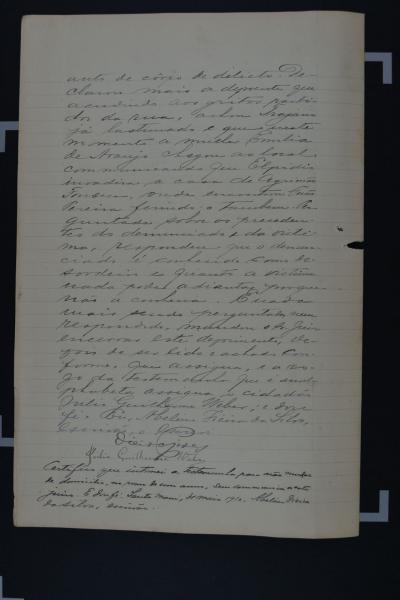 auto de côrpo de delicto. De-
clarou mais a depoente que
acudindo aos gritos parti-
dos da rua, achou
já lastimado e que n'este
momento a mulher Emilia
de Araujo chegou ao local
communicando que Elpidio
invadira a casa de
Fonseca, onde encontrou
ferido, e tambem. Per-
guntada sobre os preceden-
tes do denunciado e da victi-
ma, respondeu que o denun-
ciado é conhecido como de-
sordeiro e quanto a victima
nada pode adiantar porque
não a conhecia. E nada
mais sendo perguntado, nem
respondido, mandou o Dr. Juiz
encerrar este depoimento, de-
pois de ser lido e achado con-
forme, que assigna, e a ro-
go da testemunha que é anal-
phabeta assigna o cidadão
Julio Guilherme Weber, e dou
fé. Eu, Abelino Vieira da Silva,
Escrivão o
Julio Guilherme Weber
Certifico que intimei a testemunha para não mudar
de domicilio, no prazo de um anno, sem communicar a este
Juizo. E dou fé. Santa Maria, de maio 910. Abelino Vieira
da Silva, escrivão.